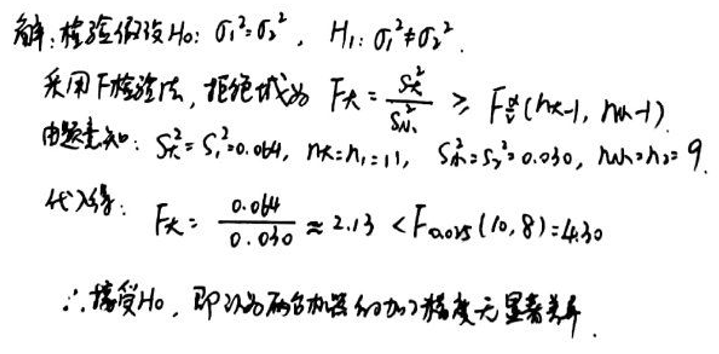 解:检验假设H₀: σ₁²=σ₂², H₁: σ₁²≠σ₂².
采用F检验法, 拒绝域为 F大 = S大²/S小² ≥ F_{α/2}(n大-1, n小-1).
由题意知: S大²=S₁²=0.064, n大=n₁=11, S小²=S₂²=0.030, n小=n₂=9.
代入得: F大 = 0.064/0.030 ≈ 2.13 < F_{0.025}(10,8)=4.30
∴接受H₀, 即认为两台机器的加工精度无显著差异.